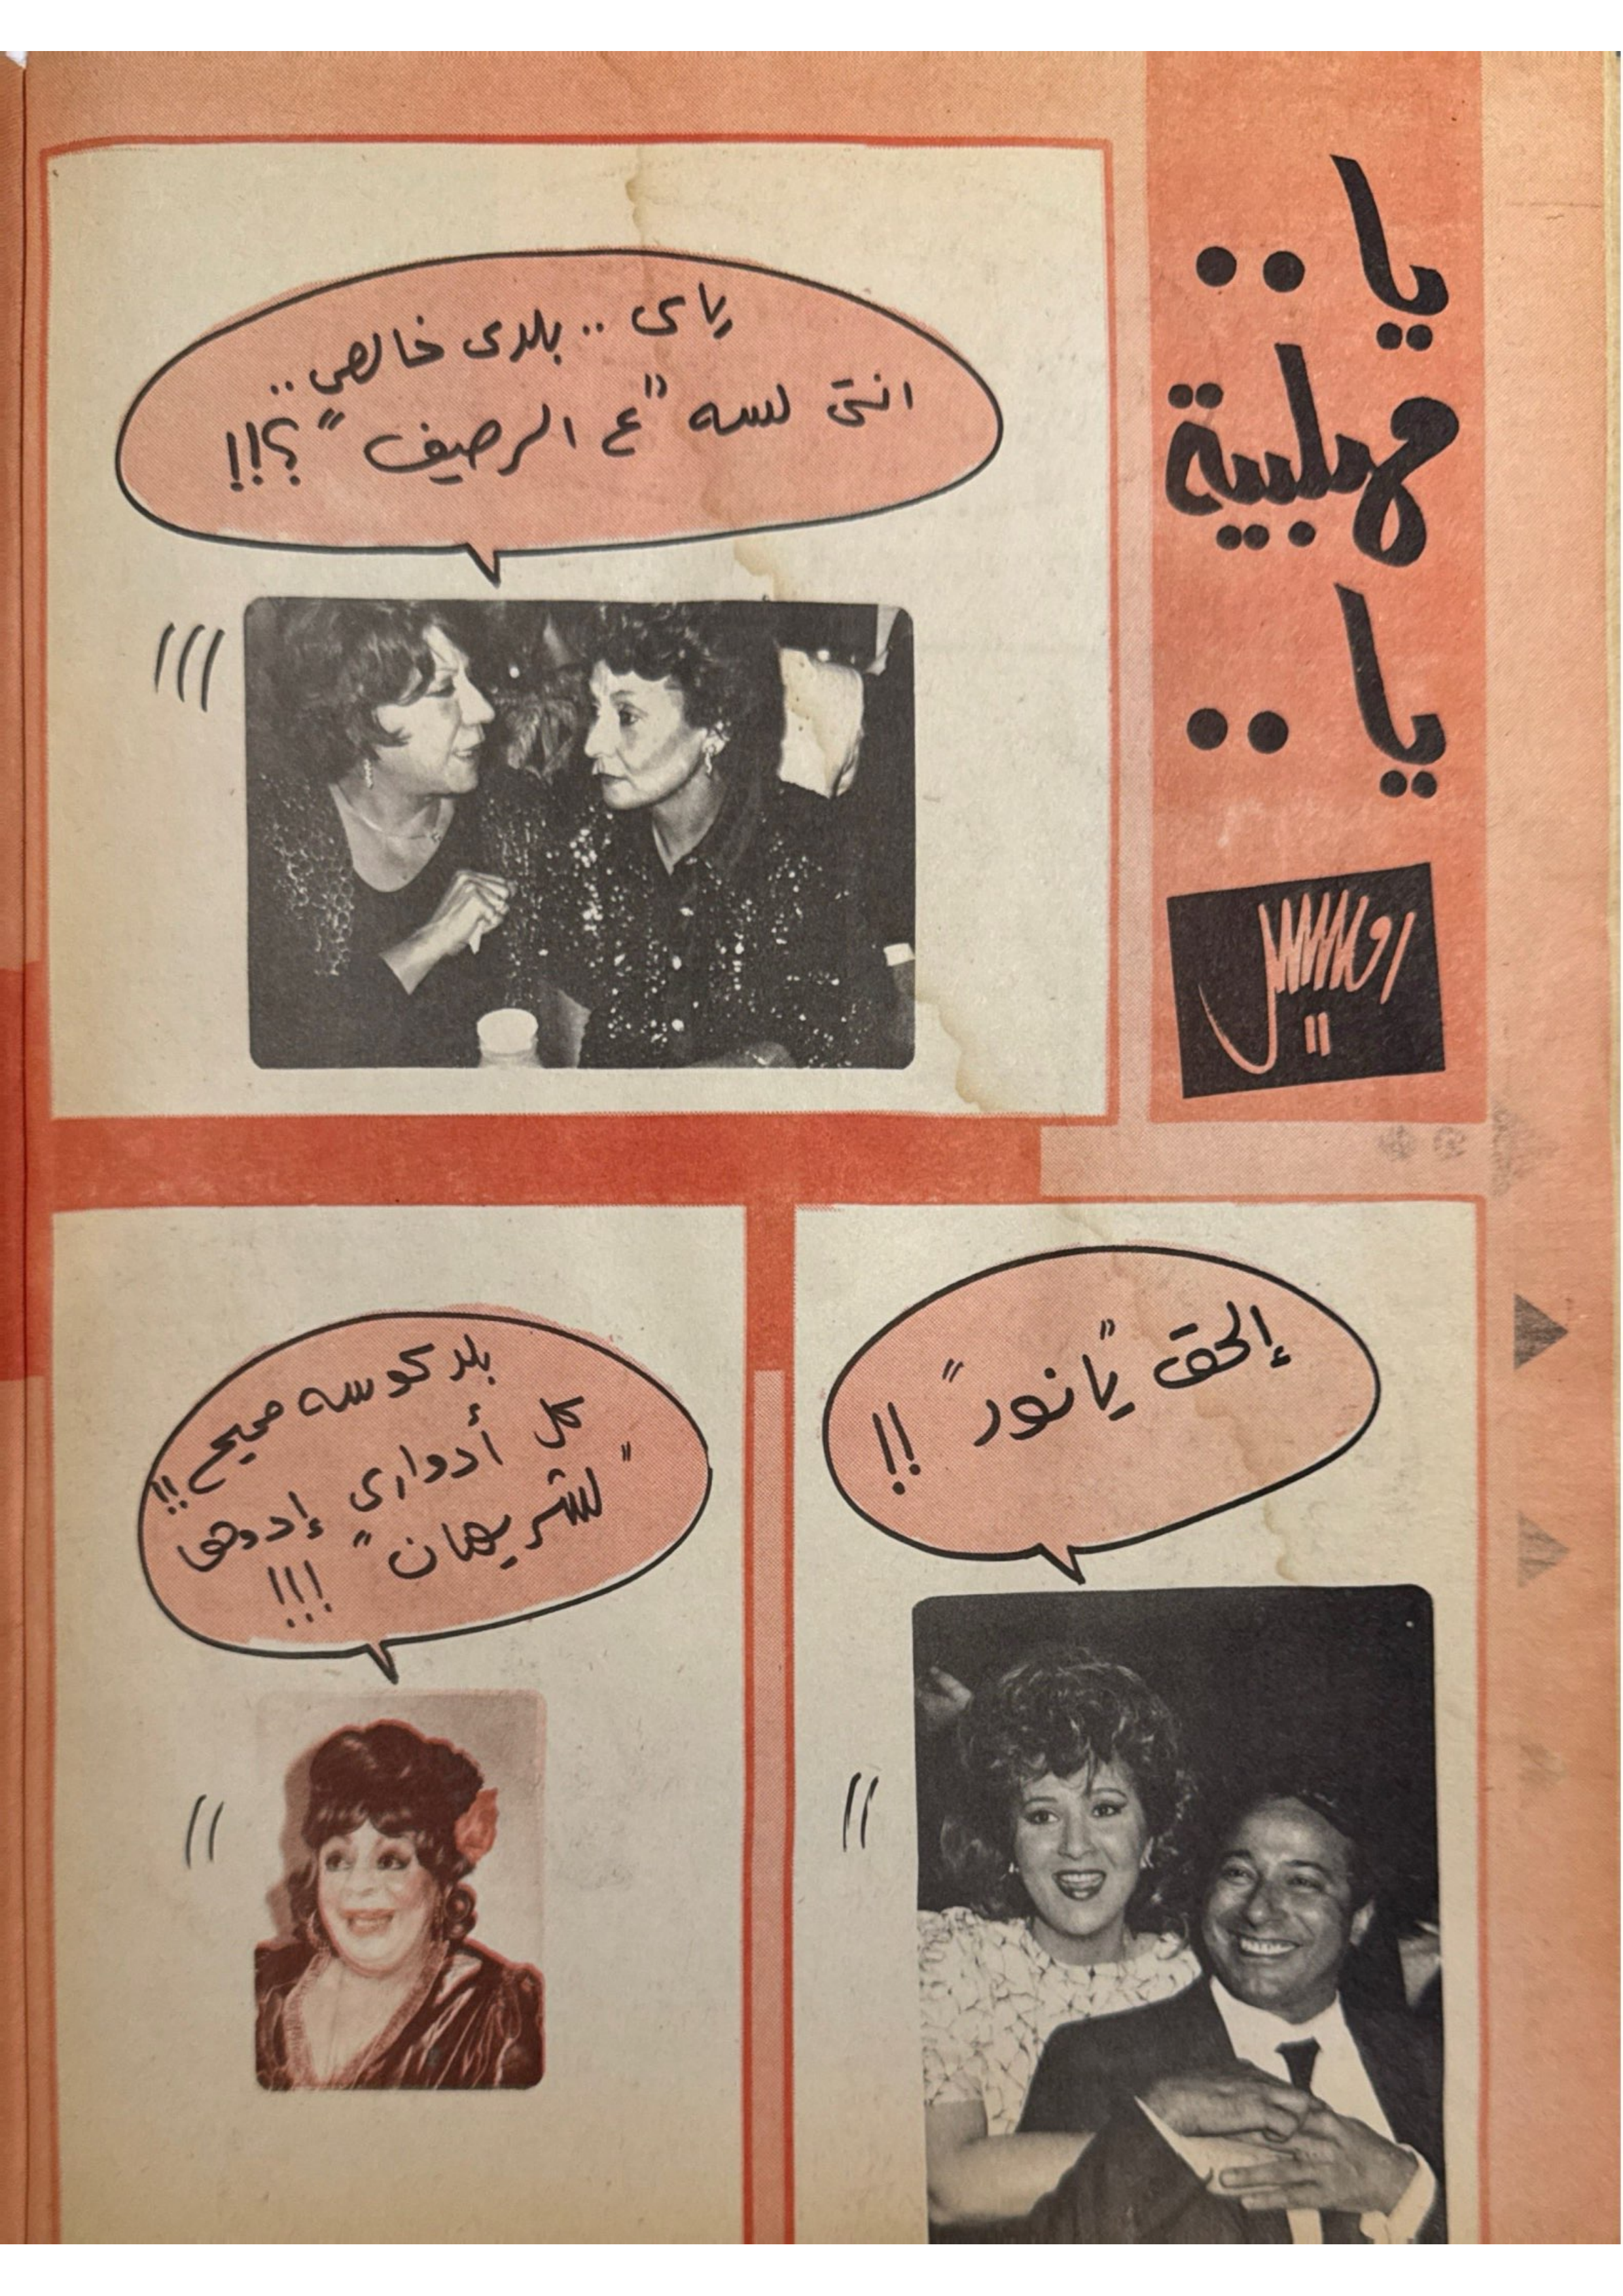 يا ..
مهلبية
يا ..
ياى .. بلدى خالص ..
انتى لسه "ع الرصيف" ؟!!
إلحق "يا نور" !!
بلد كوسه صحيح !!
كل أدواري إدوها
"لشريهان" !!!